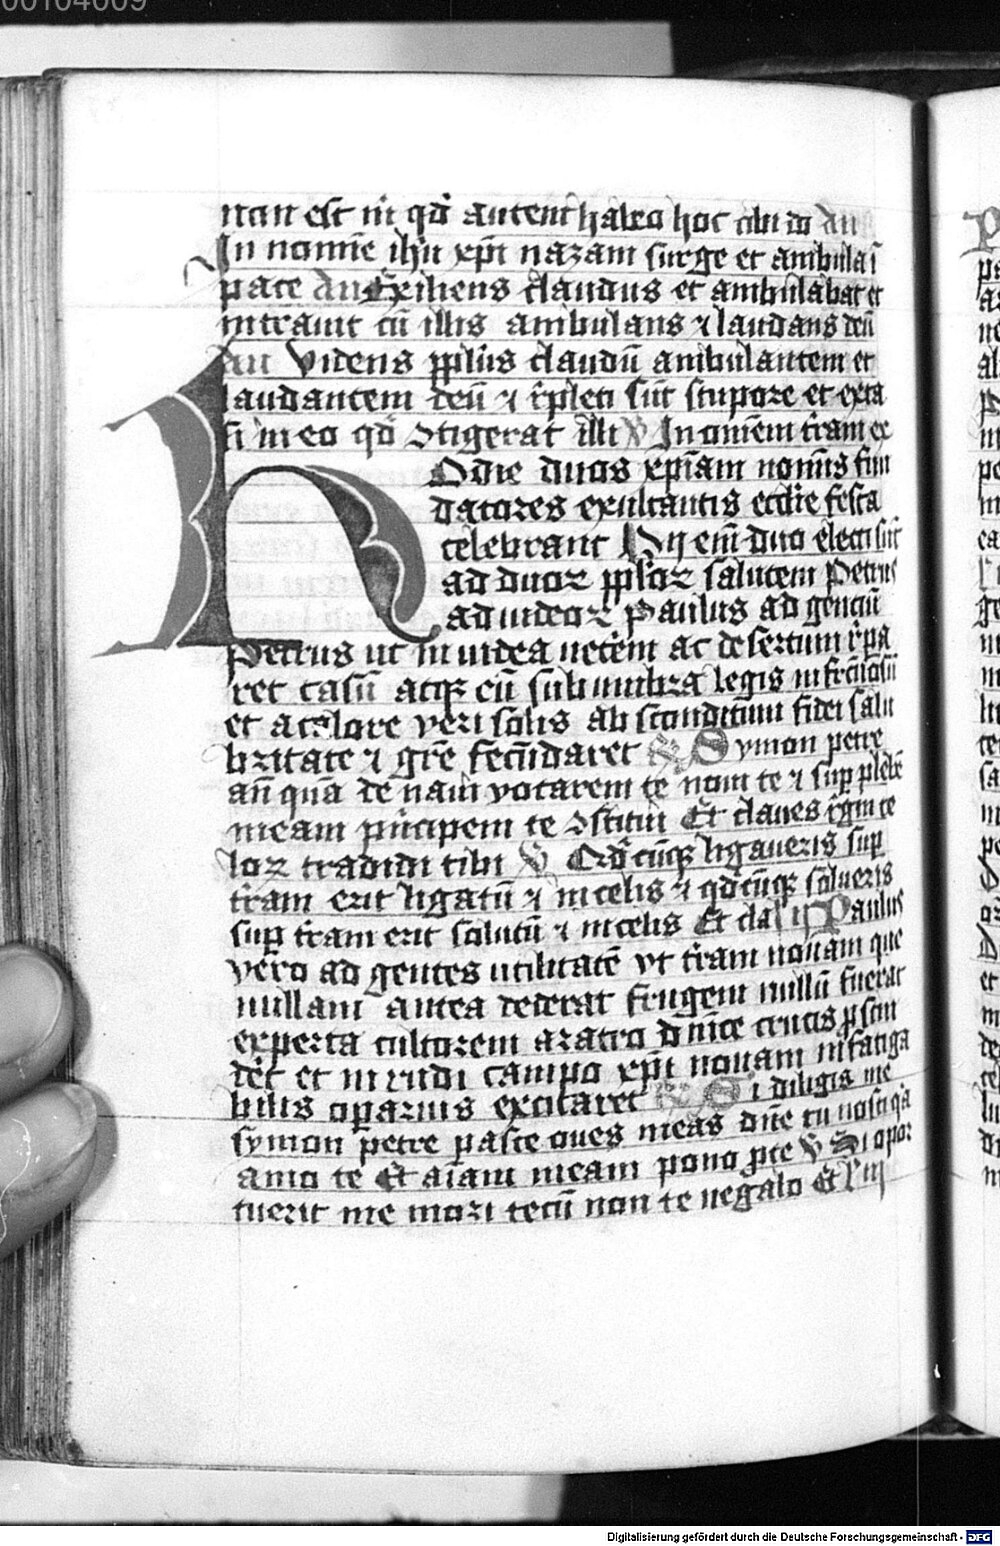 00104009
non est m̄ qd̄ autem habeo hoc tibi do Au
In nomīe ih̄u xp̄i nazarn surge et ambula ī
pace Au Exiliens claudus et ambulabat et
intrauit cū illis ambulans ⁊ laudans deū
Au Videns pplūs claudū ambulantem et
laudantem deū ⁊ r̄pleti sūt stupore et exta
si in eo qd̄ ꝯtigerat illi V In omēm tr̄am ex
Odie duos xp̄iam nomīs fun
datores exultantis eccl̄ie festa
celebrant Hij em̄ duo electi sūt
ad duoꝝ pploꝝ salutem Petrus
ad iudeoꝝ Paulus ad genciū
Petrus ut in iudea uetem̄ ac desertum r̄pa
ret casū atqꝫ eū sub umbra legis infrūctuosū
et a calore veri solis absconditum fidei salu
britate ⁊ gr̄e fecūdaret R Symon petre
an̄ quā de naui vocarem te noui te ⁊ suꝑ plebē
meam pn̄cipem te ꝯstitui Et claues r̄gni ce
loꝝ tradidi tibi V Qd̄cūqꝫ ligaueris suꝑ
tr̄am erit ligatū ⁊ in celis ⁊ qd̄cūqꝫ solueris
suꝑ tr̄am erit solutū ⁊ in celis Et cla l ij Paulus
vero ad gentes utilitatē vt tr̄am nouam que
nullam antea dederat frugem nullū fuerat
experta cultorem aratro dn̄ice crucis ꝓscin
dēt et in rudi campo xp̄i nouam infatiga
bilis oꝑarius excitaret R Si diligis me
symon petre pasce oues meas dn̄e tu nosti qa
amo te Et aīam meam pono ꝓ te V Si opor
tuerit me mori tecū non te negabo Et l iij
Digitalisierung gefördert durch die Deutsche Forschungsgemeinschaft - DFG